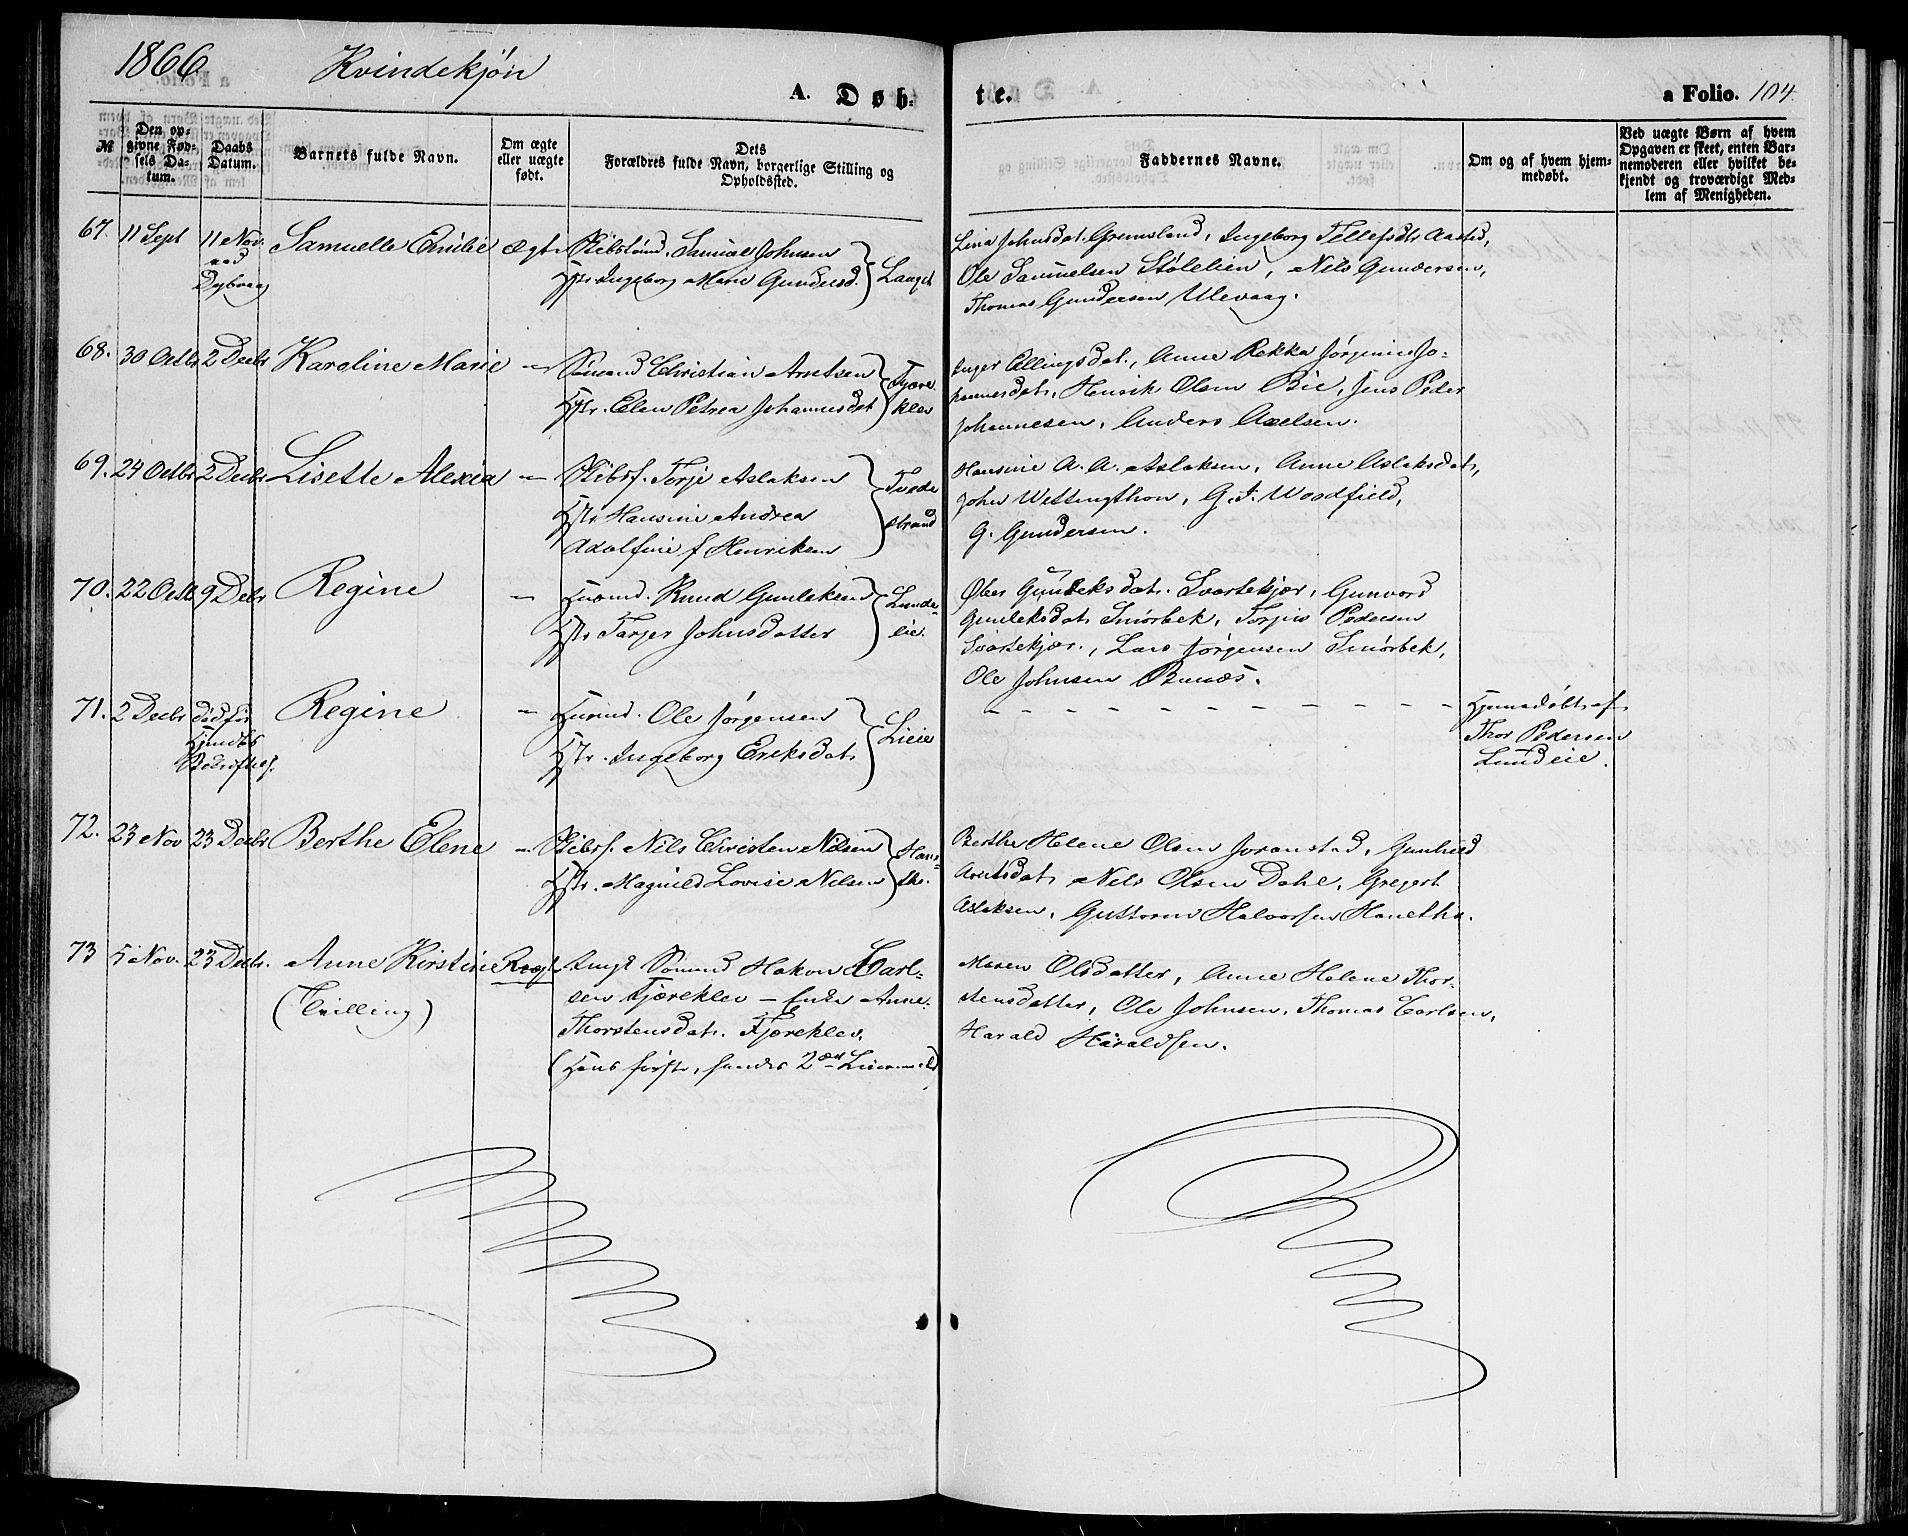 1866 Kvindekjøn
A. Døb-
te.
a Folio. 104.
№
Den op-
givne Fød-
sels Da-
tum.
Daabs
Datum.
Barnets fulde Navn.
Om ægte
eller uægte
født.
Dets
Forældres fulde Navn, borgerlige Stilling og
Opholdssted.
Faddernes Navne.
Om og af hvem hjem-
medøbt.
Ved uægte Børn af hvem
Opgaven er skeet, enten Bar-
nemoderen eller hvilket be-
kjendt og troværdigt Med-
lem af Menigheden.
67. 11 Sept 11 Nov. Samuelle Emilie ægte Samuel Johnsen
ved
Dybvaag
Hstr. Ingeborg Marie Gundersd.
Lina Johnsdat. Gremsland, Ingeborg Tellefsdtr
Ole Samuelsen Stølelien, Nils Gundersen,
Thomas Gundersen Ulevaag.
68. 30 Octbr 2 Decbr Karoline Marie — Sømand Christian Arntsen
Hstr. Elen Petrea Johannesdat
Fjære
klev
Inger Ellingsdat., Anne Rekka Jørgine Jo-
hannesdat., Henrik Olsen Bie, Jens Peder
Johannesen, Anders Axelsen.
69. 24 Octbr 2 Decbr Lisette Alexia — Skibsf. Terje Aslaksen
Hstr Hansine Andrea
Adolfine f Henriksen
Tvede
strand
Hansine A. A. Aslaksen, Anne Aslaksdat,
John Wettingthon, G. F. Woodfield,
G. Gundersen.
70. 22 Octb 9 Decbr Regine — Huusmd. Knud Gunleksen
Hstr Tarjer Johnsdatter
Lunde-
eie.
Gunleksdat. Svartekjær, Gunvord
Gunleksdat. Smørbek, Torjus Pedersen
Svartekjær., Lars Jørgensen Smørbek,
Ole Johnsen
71. 2 Decbr død før Regine — Huusmd. Ole Jørgensen
Hstr. Ingeborg Eriksdat.
Lieie
Hjemmedøbt af
Thor Pedersen
Lundeie.
72. 23 Nov 23 Decbr Berthe Elene — Skibsf. Nils Christen Nilsen
Hstr. Magnild Lovise Nilsen
Hans-
tho.
Berthe Helene Olsen Joranstad, Gunhild
Arntsdat. Nils Olsen Dahl, Gregert
Aslaksen, Guttorm Halvorsen
73 5 Nov. 23 Decbr. Anne Kirstine Uægt Ungk Sømand Hakon Carl-
(Tvilling)
sen Fjæreklev — Enke Anne
Thorstensdat. Fjæreklev.
(Hans første, hendes 2den Leiermaal)
Maren Olsdatter, Anne Helene Thor-
stensdatter, Ole Johnsen, Thomas Carlsen,
Harald Haraldsen.